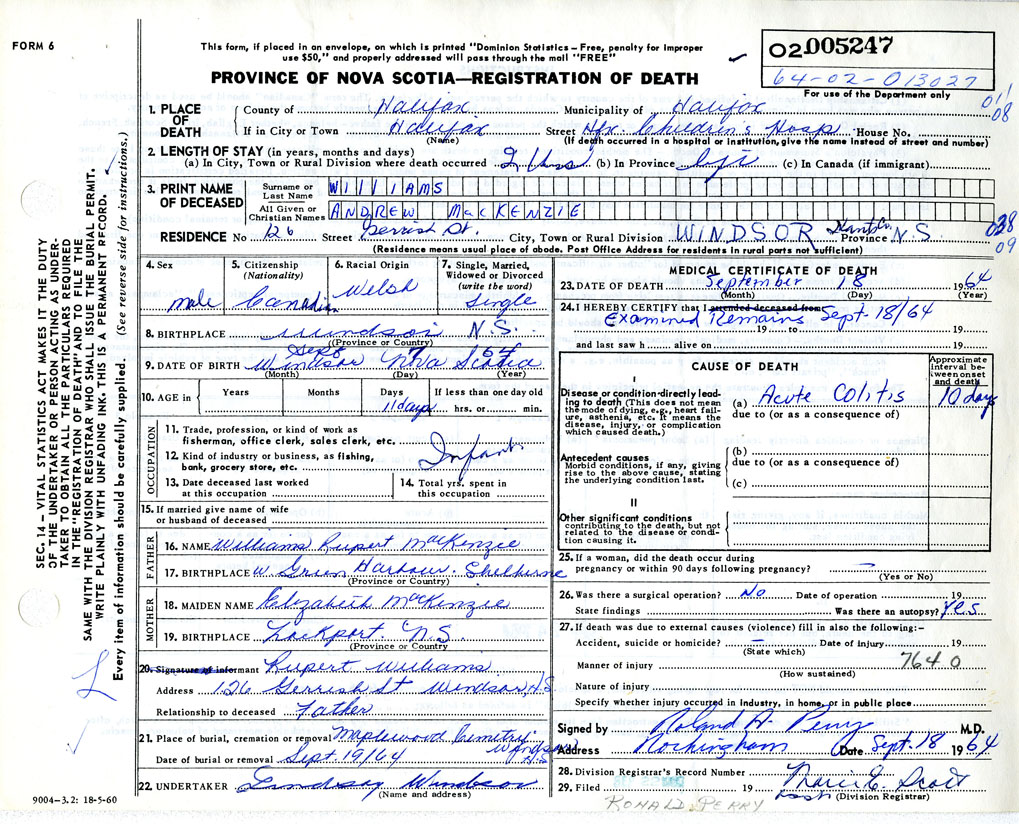 FORM 6
This form, if placed in an envelope, on which is printed "Dominion Statistics – Free, penalty for improper
use $50," and properly addressed will pass through the mail "FREE"
PROVINCE OF NOVA SCOTIA—REGISTRATION OF DEATH
02005247
64-02-013027
For use of the Department only
011
08
1. PLACE OF DEATH
County of Halifax Municipality of Halifax
If in City or Town Halifax Street Hfx. Children's Hosp House No.
(Name) (If death occurred in a hospital or institution, give the name instead of street and number)
2. LENGTH OF STAY (in years, months and days)
(a) In City, Town or Rural Division where death occurred 2 Hrs (b) In Province life (c) In Canada (if immigrant)
3. PRINT NAME OF DECEASED
Surname or Last Name WILLIAMS
All Given or Christian Names ANDREW MacKENZIE
RESIDENCE No 126 Street Gerrish St. City, Town or Rural Division WINDSOR Hants Co. Province N.S.
(Residence means usual place of abode. Post Office Address for residents in rural parts not sufficient)
038
09
4. Sex male
5. Citizenship (Nationality) Canadian
6. Racial Origin Welsh
7. Single, Married, Widowed or Divorced (write the word) Single
8. BIRTHPLACE Windsor N.S.
(Province or Country)
9. DATE OF BIRTH Windsor Nova Scotia Sept 7 64
(Month) (Day) (Year)
10. AGE in Years Months Days If less than one day old
11 days hrs. or min.
OCCUPATION
11. Trade, profession, or kind of work as fisherman, office clerk, sales clerk, etc.
Infant
12. Kind of industry or business, as fishing, bank, grocery store, etc.
13. Date deceased last worked at this occupation
14. Total yrs. spent in this occupation
15. If married give name of wife or husband of deceased
FATHER
16. NAME Williams Rupert MacKenzie
17. BIRTHPLACE W Green Harbour. Shelburne
(Province or Country)
MOTHER
18. MAIDEN NAME Elizabeth MacKenzie
19. BIRTHPLACE Lockport. N.S.
(Province or Country)
20. Signature of informant Rupert Williams
Address 126 Gerrish St Windsor, N.S.
Relationship to deceased Father
21. Place of burial, cremation or removal Maplewood Cemetry Windsor N.S.
Date of burial or removal Sept. 19/64
22. UNDERTAKER Lindsay Windsor
(Name and address)
9004-3.2: 18-5-60
MEDICAL CERTIFICATE OF DEATH
23. DATE OF DEATH September 18 1964
(Month) (Day) (Year)
24. I HEREBY CERTIFY that I attended deceased from
Examined Remains Sept. 18/64
19 to 19
and last saw h alive on 19
CAUSE OF DEATH
Approximate interval between onset and death
I
Disease or condition directly leading to death (This does not mean the mode of dying, e.g., heart failure, asthenia, etc. It means the disease, injury, or complication which caused death.)
(a) Acute Colitis 10 days
due to (or as a consequence of)
Antecedent causes
Morbid conditions, if any, giving rise to the above cause, stating the underlying condition last.
(b)
due to (or as a consequence of)
(c)
II
Other significant conditions
contributing to the death, but not related to the disease or condition causing it.
25. If a woman, did the death occur during pregnancy or within 90 days following pregnancy? —
(Yes or No)
26. Was there a surgical operation? No Date of operation 19
State findings Was there an autopsy? Yes
27. If death was due to external causes (violence) fill in also the following:-
Accident, suicide or homicide? — Date of injury 19
(State which)
Manner of injury 764 0
(How sustained)
Nature of injury
Specify whether injury occurred in industry, in home, or in public place
Signed by Roland A. Perry M.D.
Address Rockingham Date Sept. 18 1964
28. Division Registrar's Record Number
29. Filed 19
(Division Registrar)
RONALD PERRY
SEC. 14 – VITAL STATISTICS ACT MAKES IT THE DUTY
OF THE UNDERTAKER OR PERSON ACTING AS UNDERTAKER TO OBTAIN ALL THE PARTICULARS REQUIRED
IN THE "REGISTRATION OF DEATH" AND TO FILE THE
SAME WITH THE DIVISION REGISTRAR WHO SHALL ISSUE THE BURIAL PERMIT.
WRITE PLAINLY WITH UNFADING INK. THIS IS A PERMANENT RECORD.
Every item of information should be carefully supplied. (See reverse side for instructions.)